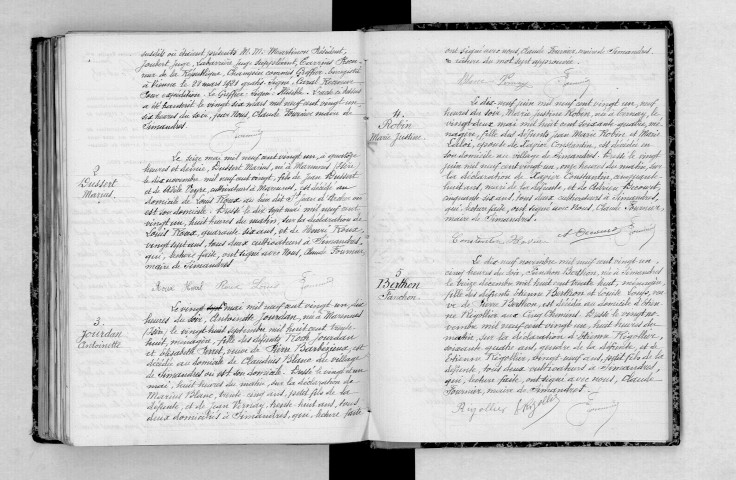 susdits où étaient présents M. M. Martinon Président,
Joubert juge, Laharrière juge suppléant, Procureur
de la République, Champin commis Greffier. Enregistré
à Vienne le 22 mars 1921
Pour expédition. Le Greffier signé: Transcrit ci-dessus
a été transcrit le vingt six mars mil neuf cent vingt un
six heures du soir, par Nous, Claude Fournier maire de
Simandres.
2
Dussort
Marius.
Le seize mai mil neuf cent vingt un, à quatorze
heures et demie, Dussort Marius, né à Marennes (Isère)
le dix novembre mil neuf cent vingt, fils de Jean Dussort
et de Peyre, cultivateurs à Marennes, est décédé au
domicile de Louis Roux au lieu dit St Jean de
est son domicile. Dressé le dix sept mai mil neuf cent
vingt un, huit heures du matin, sur la déclaration de
Louis Roux, quarante six ans, et de Henri Roux
vingt sept ans, tous deux cultivateurs à Simandres,
qui, lecture faite, ont signé avec Nous, Claude Fournier,
maire de Simandres
Roux Roux Louis
3.
Jourdan
Antoinette
Le vingt mai mil neuf cent vingt un, six
heures du soir, Antoinette Jourdan, née à Marennes
(Isère), le vingt huit septembre mil huit cent trente
huit, ménagère, fille des défunts Roch Jourdan
et Elisabeth, veuve de Pierre est
décédée au domicile de Claudius Blanc au village
de Simandres où est son domicile. Dressé le vingt et un
mai, huit heures du matin, sur la déclaration de
Marius Blanc, trente cinq ans, petit fils de la
défunte, et de Jean Vernay, trente huit ans, tous
deux domiciliés à Simandres, qui, lecture faite
ont signé avec nous, Claude Fournier, maire de Simandres.
rature du mot sept approuvée.
4.
Robin
Marie Justine.
Le dix neuf juin mil neuf cent vingt un, neuf
heures du soir, Marie Justine Robin, née à Ternay, le
vingt deux mai mil huit cent soixante quatre, ménagère,
fille des défunts Jean Marie Robin et Marie
épouse de Constantin, est décédée en
son domicile au village de Simandres. Dressé le vingt
juin mil neuf cent vingt un, onze heures du matin, sur
la déclaration de Constantin, cinquante
huit ans, mari de la défunte, et de Adrien
cinquante six ans, tous deux cultivateurs à Simandres,
qui, lecture faite, ont signé avec Nous, Claude Fournier,
maire de Simandres.
Constantin
5
Berthon
Fanchon.
Le dix neuf novembre mil neuf cent vingt un,
cinq heures du soir, Fanchon Berthon, née à Simandres
le treize décembre mil huit cent trente huit, ménagère,
fille des défunts Etienne Berthon et Louise,
veuve de Pierre est décédée au domicile d'Etienne
Rigollier aux Cinq Chemins. Dressé le vingt novembre
mil neuf cent vingt un, huit heures du
matin, sur la déclaration d'Etienne Rigollier,
soixante quatre ans, gendre de la défunte, et de
Etienne Rigollier, vingt neuf ans, petit fils de la
défunte, tous deux cultivateurs à Simandres,
qui, lecture faite, ont signé avec nous, Claude
Fournier, maire de Simandres.
Rigollier Rigollier